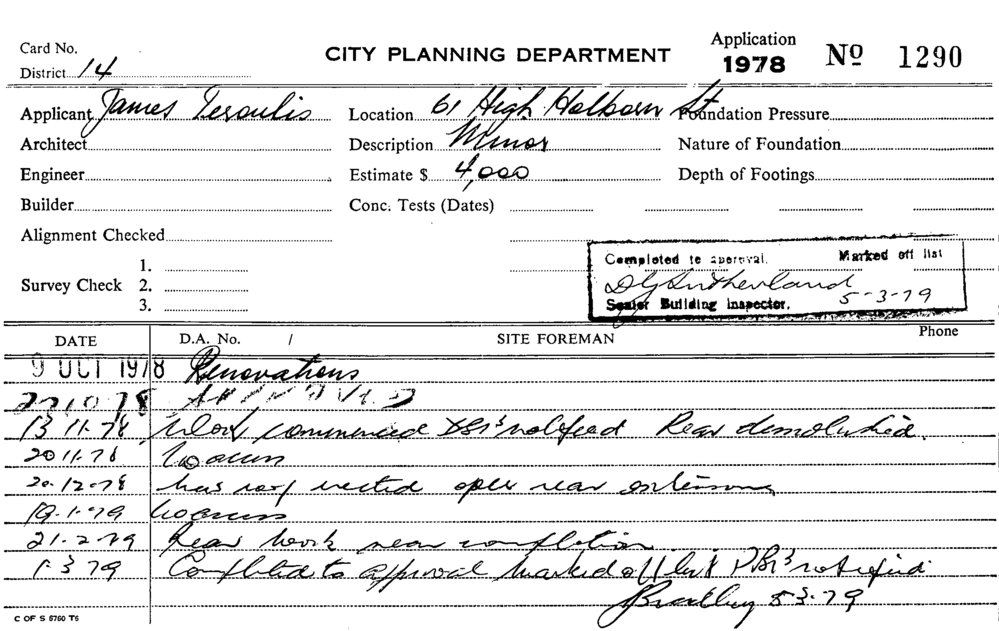 Card No. CITY PLANNING DEPARTMENT Application 1978 Nº 1290
District 14
Applicant James Location 61 High Holborn St Foundation Pressure
Architect Description Minor Nature of Foundation
Engineer Estimate $ 4,000 Depth of Footings
Builder Conc. Tests (Dates)
Alignment Checked
Completed to approval. Marked off list
Survey Check 1.
2.
3.
DGSutherland
5-3-79
Senior Building Inspector.
DATE D.A. No. / SITE FOREMAN Phone
9 OCT 1978 Renovations
APPROVED
13-11-78 Work commenced notified Rear demolished.
20-11-78
20-12-78 erected rear
19-1-79
21-2-79 Rear work near completion
1-3-79 Completed to approval Marked off list notified
5-3-79
C OF S 5750 T5